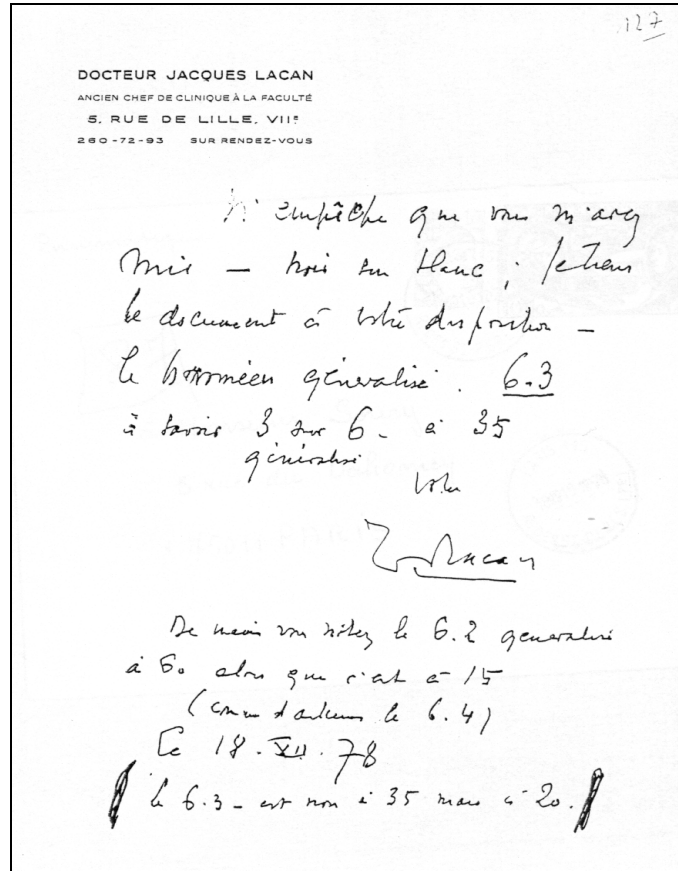 127
DOCTEUR JACQUES LACAN
ANCIEN CHEF DE CLINIQUE À LA FACULTÉ
5, RUE DE LILLE, VIIe
260-72-93 SUR RENDEZ-VOUS
N'empêche que vous m'avez
mis — noir sur blanc ; je tiens
le document à votre disposition —
le borroméen généralisé. 6.3
à savoir 3 sur 6 - à 35
généralisé
Votre
J. Lacan
De même vous notez le 6.2 généralisé
à 60 alors que c'est à 15
(comme d'ailleurs le 6.4)
Ce 18.XII.78
le 6.3 - est non à 35 mais à 20.